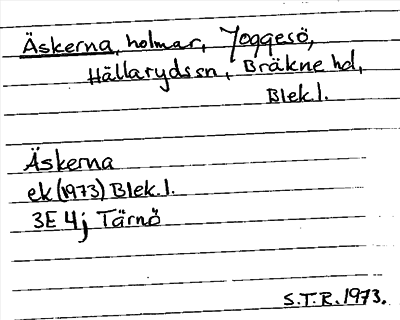 Äskerna, holmar, Joggesö,
Hällarydssn, Bräkne hd,
Blek.l.
Äskerna
ek (1973) Blek.l.
3E 4j Tärnö
S.T.R. 1973.